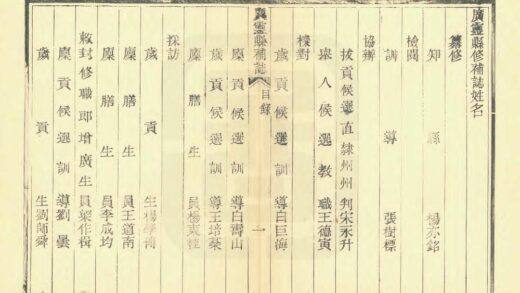 廣靈縣修補誌姓名
纂修
知縣楊亦銘
檢閱
訓導張樹標
協辦
拔貢候選直隸州州判宋永升
舉人候選教職王德寅
校對
歲貢候選訓導白巨海
廣靈縣補誌 目錄 一
廩貢候選訓導白壽山
歲貢候選訓導王培榮
廩膳生員楊東
採訪
歲貢生楊學
廩膳生員王道南
廩膳生員李成均
敕封修職郎增廣生員梁作楫
廩貢候選訓導劉曇
歲貢生劉師舜